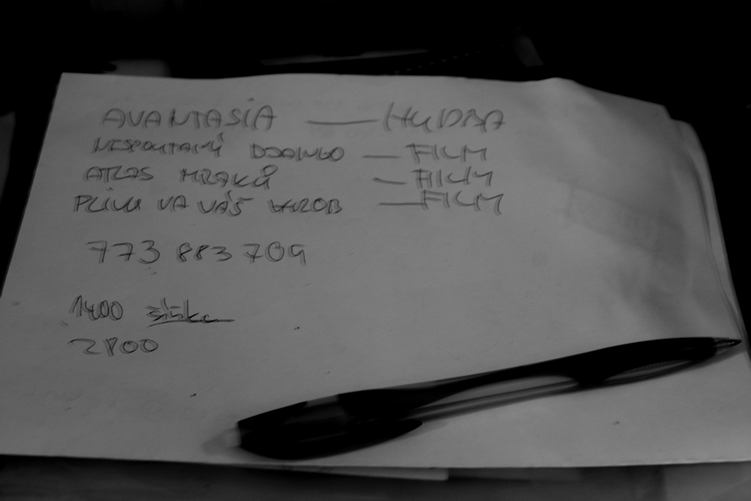 AVANTASIA — HYDRA
NESPOUTANÝ DJANGO — FILM
ATLAS MRAKŮ — FILM
PLIVU NA VÁŠ HROB — FILM
773 883 709
1400
2800